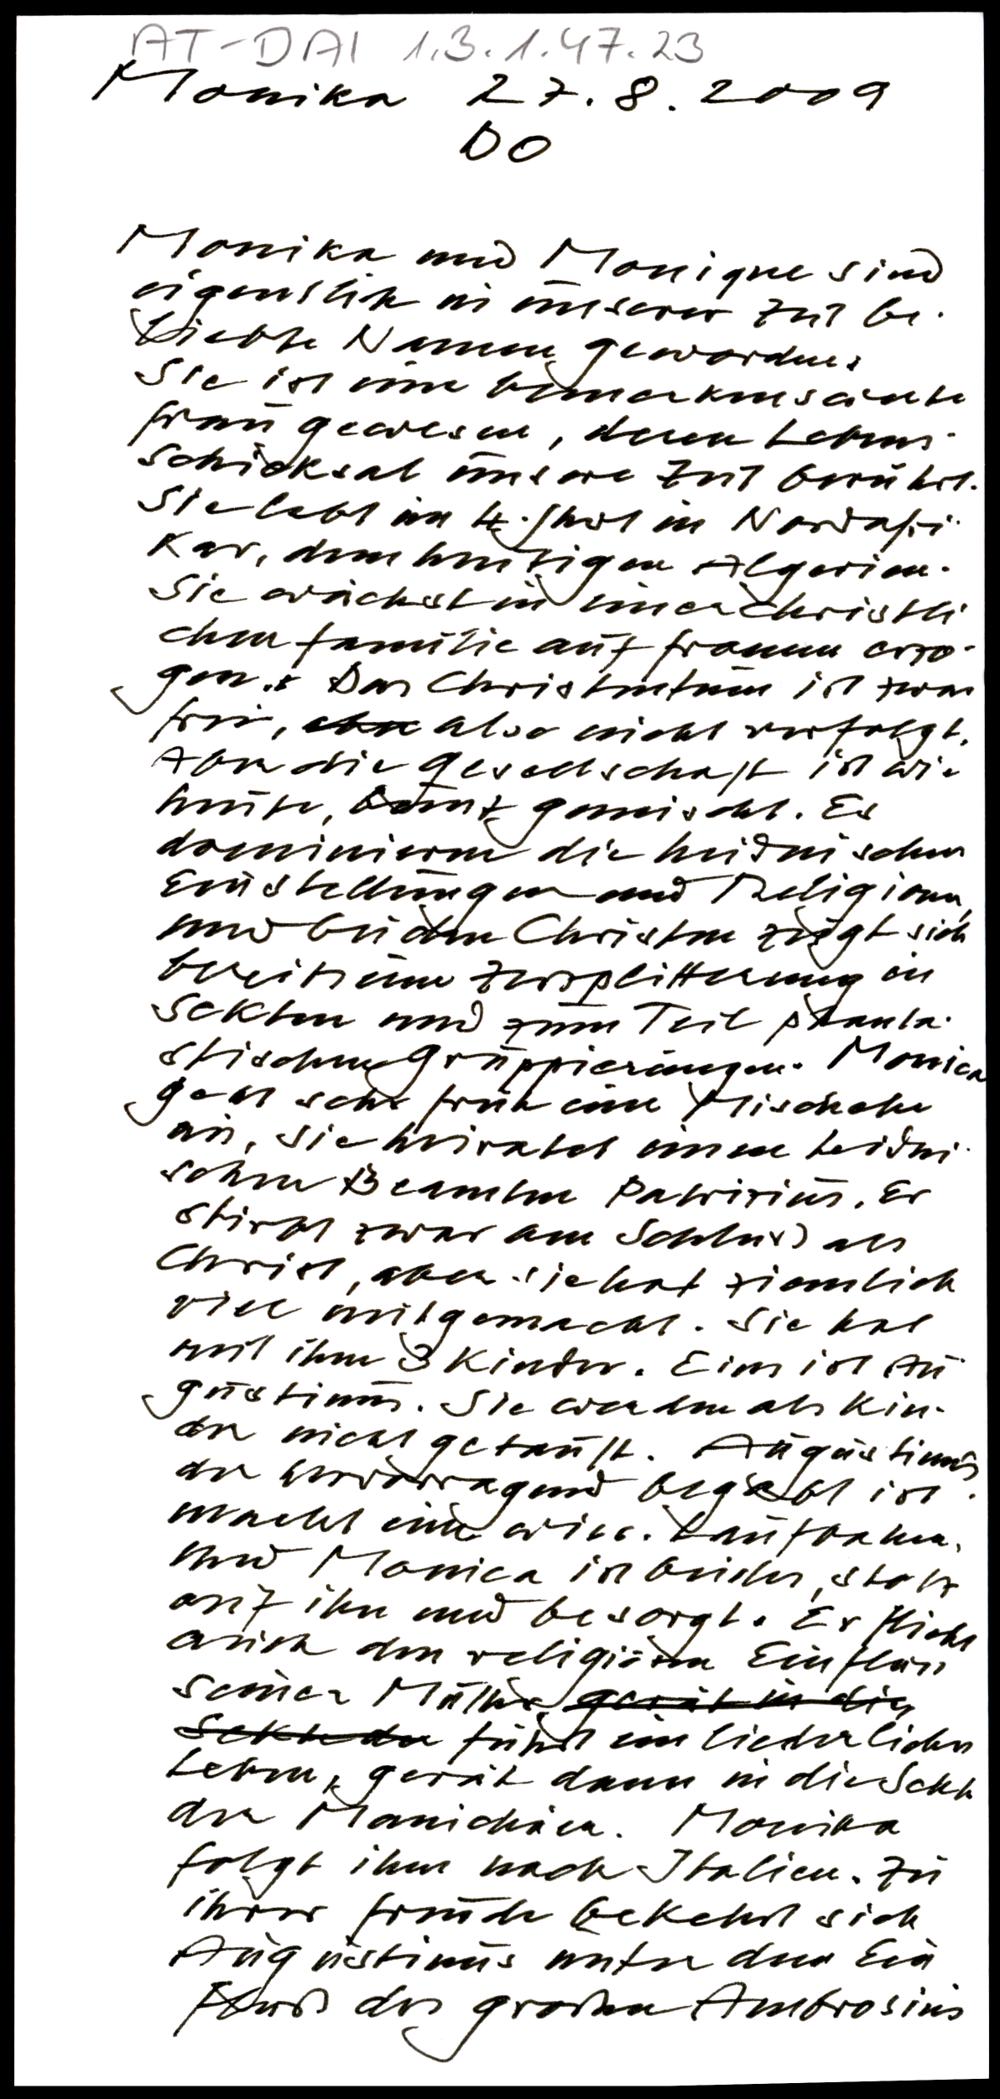 AT-DAI 1.3.1.47.23
Monika 27.8.2009
DO
Monika und Monique sind
eigentlich in unserer Zeit be-
liebte Namen geworden.
Sie ist eine bemerkenswerte
Frau gewesen, deren Lebens-
schicksal unsere Zeit berührt.
Sie lebt im 4. Jhrt in Nordafri-
kar, dem heutigen Algerien.
Sie wächst in einer christli
chen Familie auf fromm erzo-
gen. Das Christentum ist zwar
frei, also nicht verfolgt.
Aber die Gesellschaft ist wie
heute, bunt gemischt. Es
dominieren die heidnischen
Einstellungen und Religionen,
und bei den Christen zeigt sich
bereits eine Zersplitterung in
Sekten und zum Teil phanta-
stischen Gruppierungen. Monica
geht sehr früh eine Mischehe
ein, sie heiratet einen heidni-
schen Beamten Patrizius. Er
stirbt zwar am Schluß als
Christ, aber sie hat ziemlich
viel mitgemacht. Sie hat
mit ihm 3 Kinder. Eines ist Au
gustinus. Sie werden als Kin-
der nicht getauft. Augustinus
der hervorragend begabt ist
macht eine wiss. Laufbahn.
Und Monica ist beides, stolz
auf ihn und besorgt. Er flieht
auch den religiösen Einfluss
seiner Mutter, gerät in die
Sekte der führt ein liederliches
Leben, gerät dann in die Sekte
der Manichäer. Monika
folgt ihm nach Italien. Zu
ihrer Freude bekehrt sich
Augustinus unter dem Ein
fluß des großen Ambrosius